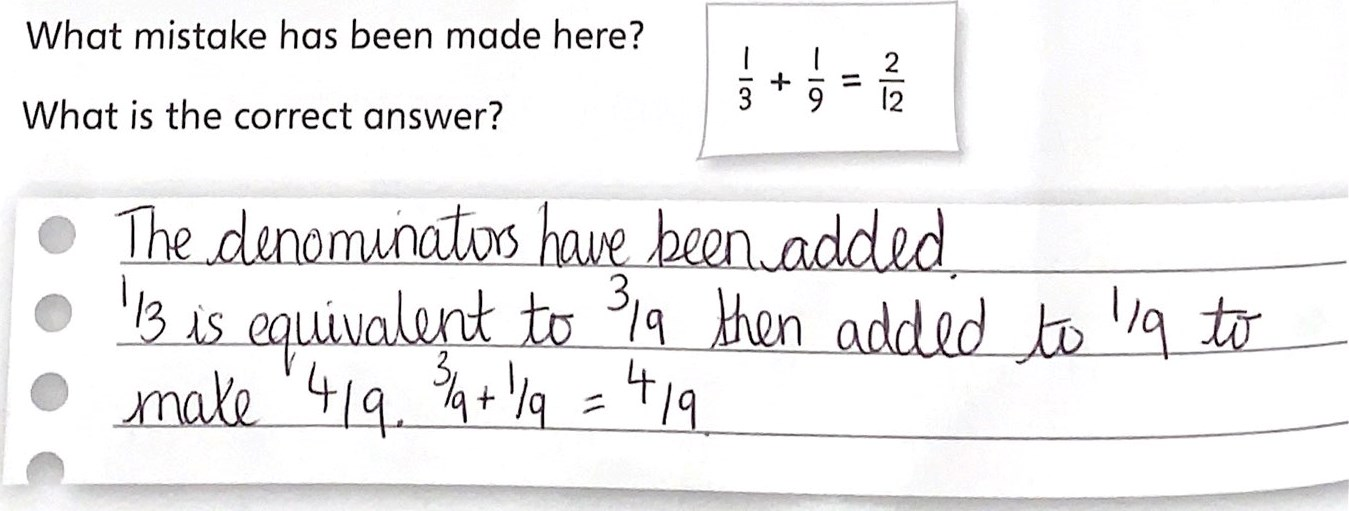 What mistake has been made here?
What is the correct answer?
1/3 + 1/9 = 2/12
The denominators have been added.
1/3 is equivalent to 3/9 then added to 1/9 to
make 4/9. 3/9 + 1/9 = 4/9.